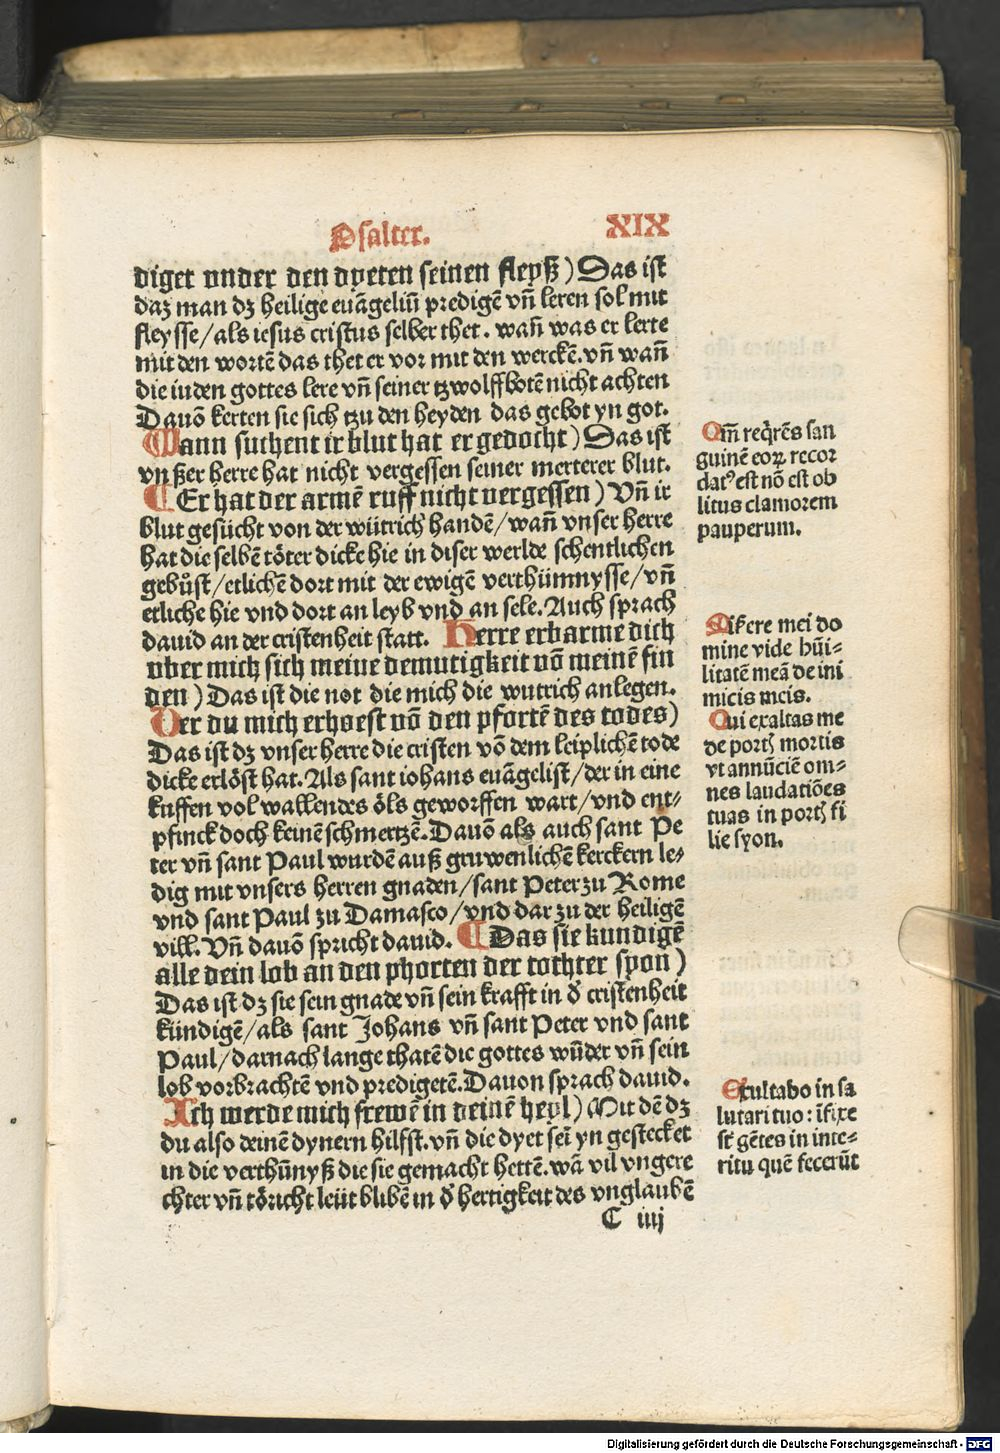 Psalter. XIX
diget vnder den dyeten seinen fleyß) Das ist
daz man dz heilige euãgeliũ predigẽ vñ leren sol mit
fleysse/als iesus cristus selber thet. wañ was er lerte
mit den wortẽ das thet er vor mit den werckẽ. vñ wañ
die iuden gottes lere vñ seiner tzwolffbotẽ nicht achten
Dauõ kerten sie sich tzu den heyden das gebot yn got.
Wann suchent ir blut hat er gedocht) Das ist
vnßer herre hat nicht vergessen seiner merterer blut.
¶ Er hat der armẽ ruff nicht vergessen) Vñ ir
blut gesücht von der wütrich handẽ/wañ vnser herre
hat die selbẽ töter dicke hie in diser werlde schentlichen
gebůst/etlichẽ dort mit der ewigẽ verthümnysse/vñ
etliche hie vnd dort an leyb vnd an sele. Auch sprach
dauid an der cristenheit statt. Herre erbarme dich
vber mich sich meine demutigkeit võ meinẽ fin
den) Das ist die not die mich die wutrich anlegen.
Der du mich erhoest võ den pfortẽ des todes)
Das ist dz vnser herre die cristen võ dem leiplichẽ tode
dicke erlöst hat. Als sant iohans euãgelist/der in eine
kuffen vol wallendes öls geworffen wart/vnd ent⸗
pfinck doch keinẽ schmertzẽ. Dauõ als auch sant Pe
ter vñ sant Paul wurdẽ auß gruwenlichẽ kerckern le⸗
dig mit vnsers herren gnaden/sant Peter zu Rome
vnd sant Paul zu Damasco/vnd dar zu der heiligẽ
vill. Vñ dauõ spricht dauid. ¶ Das sie kundigẽ
alle dein lob an den phorten der tochter syon)
Das ist dz sie sein gnade vñ sein krafft in d̕ cristenheit
kündigẽ/als sant Johans vñ sant Peter vnd sant
Paul/darnach lange thatẽ die gottes wũder vñ sein
lob vorbrachtẽ vnd predigetẽ. Dauon sprach dauid.
Ich werde mich frewẽ in deinẽ heyl) Mit dẽ dz
du also deinẽ dynern hilfst. vñ die dyet sei yn gestecket
in die verthũnyß die sie gemacht hettẽ. wã vil vngere
chter vñ töricht leüt blibẽ in d̕ hertigkeit des vnglaubẽ
C iiij
Qm̃ req̃rẽs san
guinẽ eoꝝ recor
datꝰ est nõ est ob
litus clamorem
pauperum.
Misere mei do
mine vide hũi⸗
litatẽ meã de ini
micis meis.
Qui exaltas me
de portꝭ mortis
vt annũciẽ om⸗
nes laudatiões
tuas in portꝭ fi
lie syon.
Exultabo in sa
lutari tuo: ĩfixe
st̃ gẽtes in inte⸗
ritu quẽ fecerũt
Digitalisierung gefördert durch die Deutsche Forschungsgemeinschaft - DFG